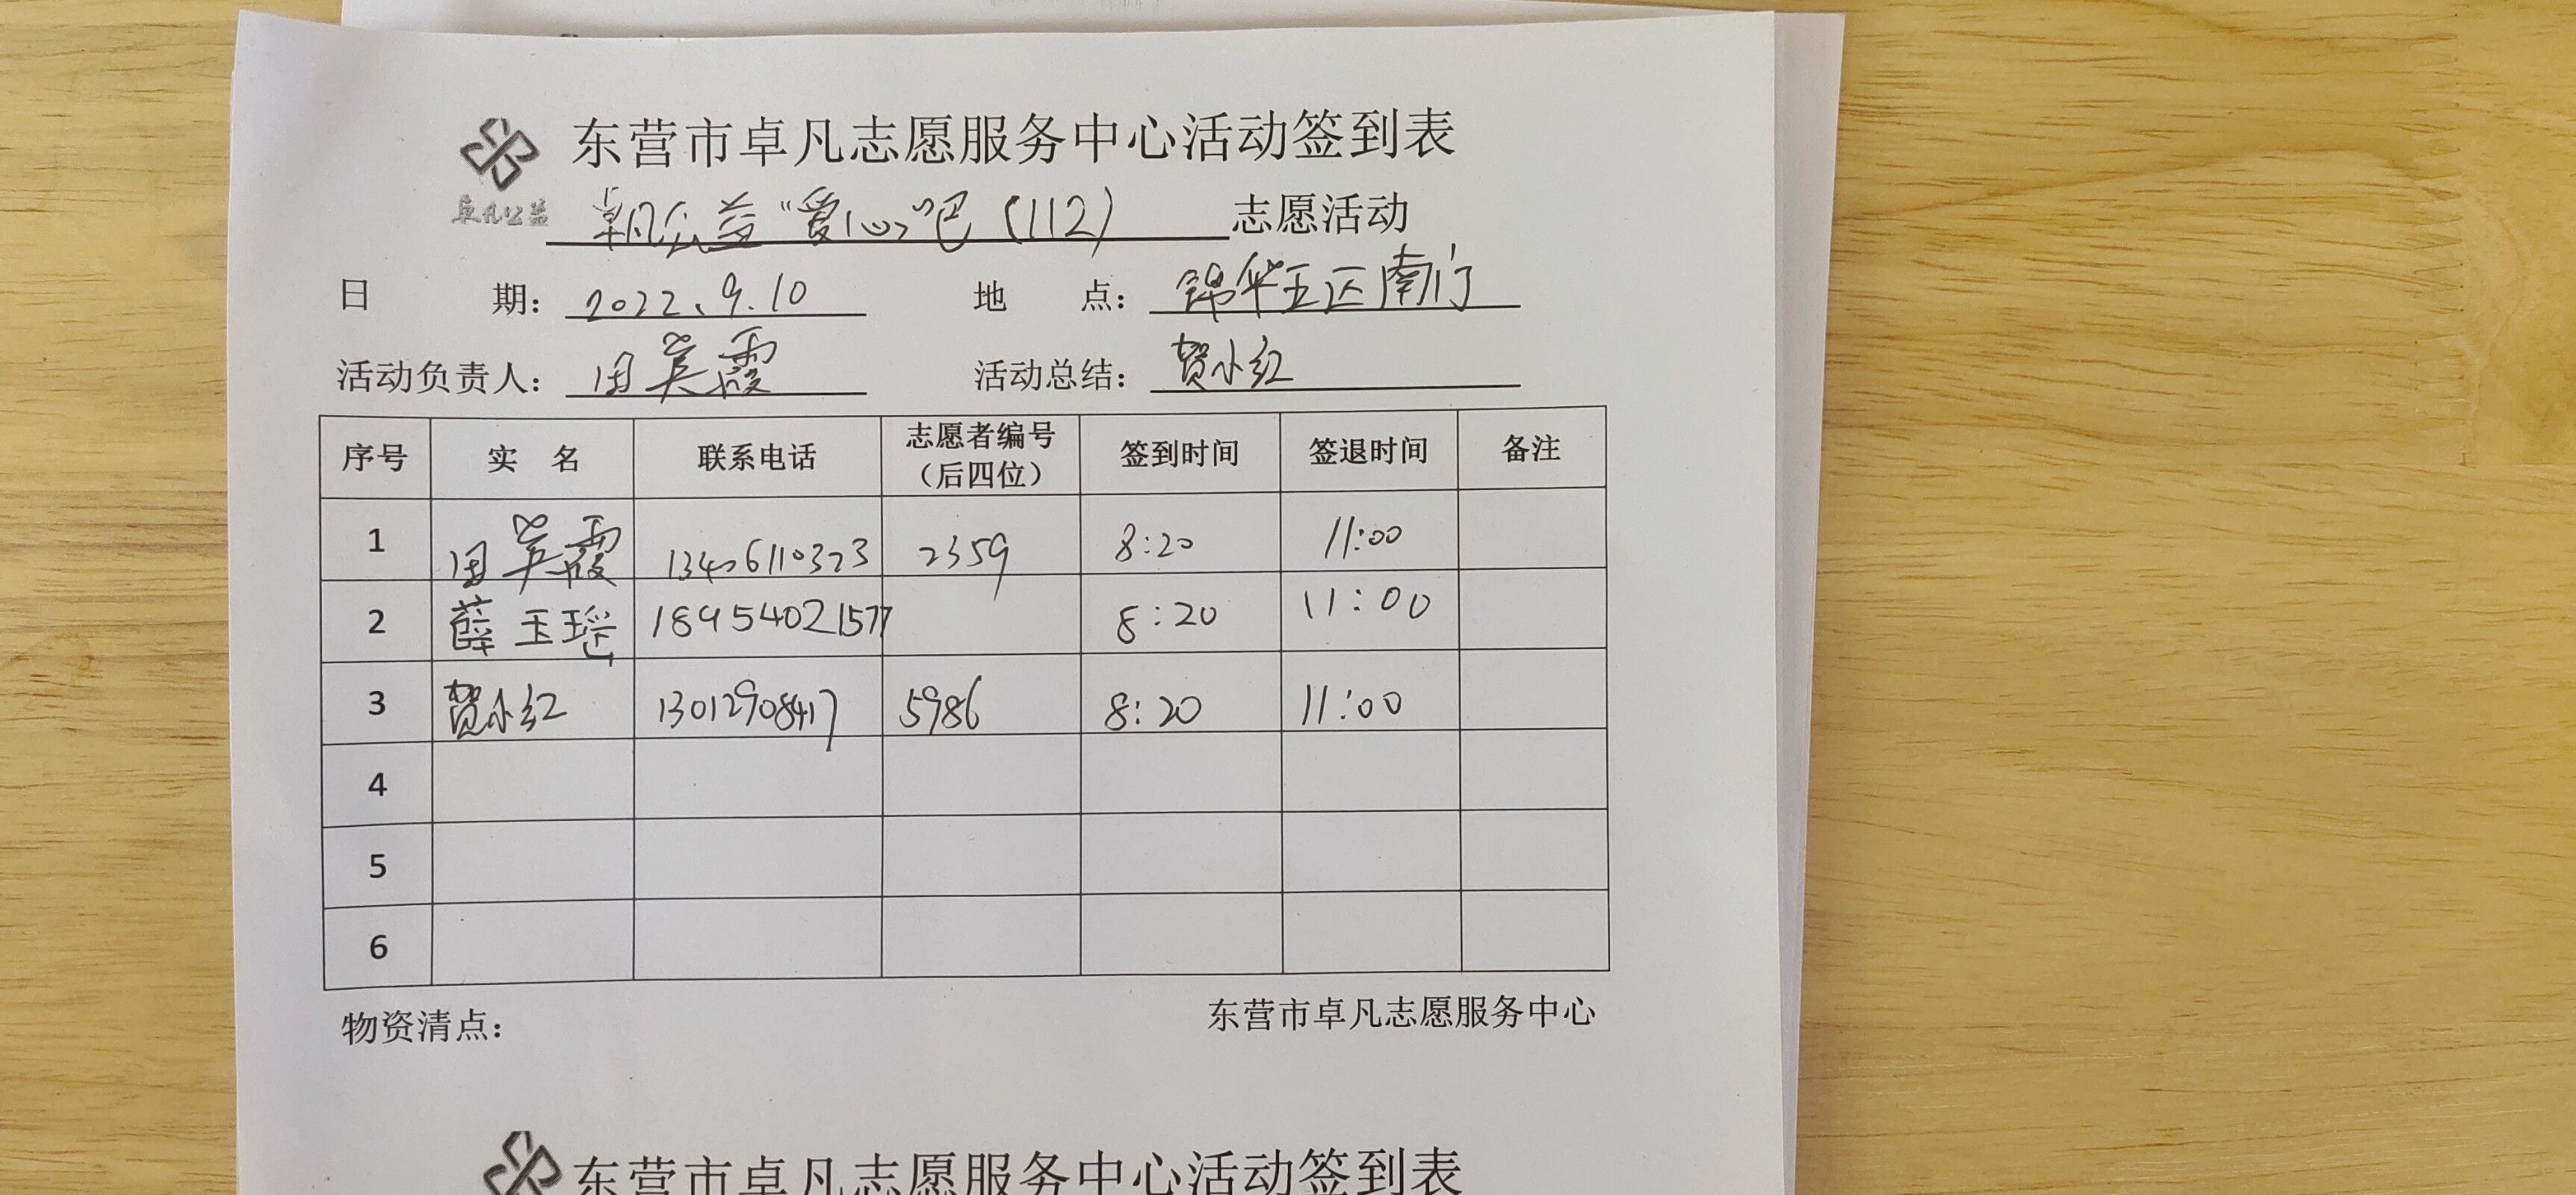 东营市卓凡志愿服务中心活动签到表
卓凡公益
卓凡公益“爱心”吧（112）志愿活动
日 期：2022、9.10 地 点：锦华五区南门
活动负责人：田英霞 活动总结：贺小红
序号 实 名 联系电话 志愿者编号（后四位） 签到时间 签退时间 备注
1 田英霞 13406110323 2359 8:20 11:00
2 薛玉瑶 18954021577 8:20 11:00
3 贺小红 13012908417 5986 8:20 11:00
4
5
6
物资清点： 东营市卓凡志愿服务中心
东营市卓凡志愿服务中心活动签到表